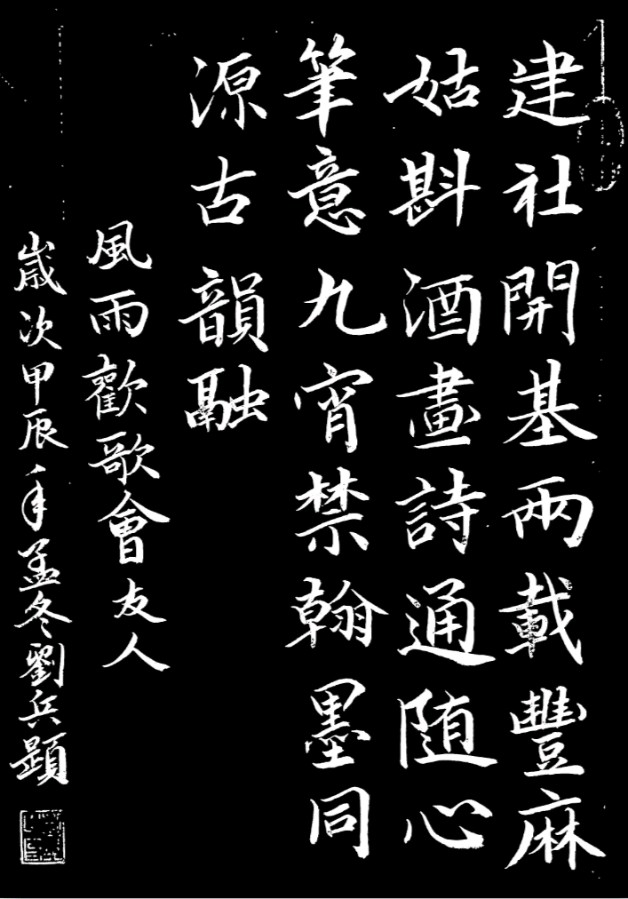 建社開基兩載豐麻
姑斟酒畫詩通随心
筆意九宵禁翰墨同
源古韻融
風雨歡歌會友人
歲次甲辰年孟冬劉兵題